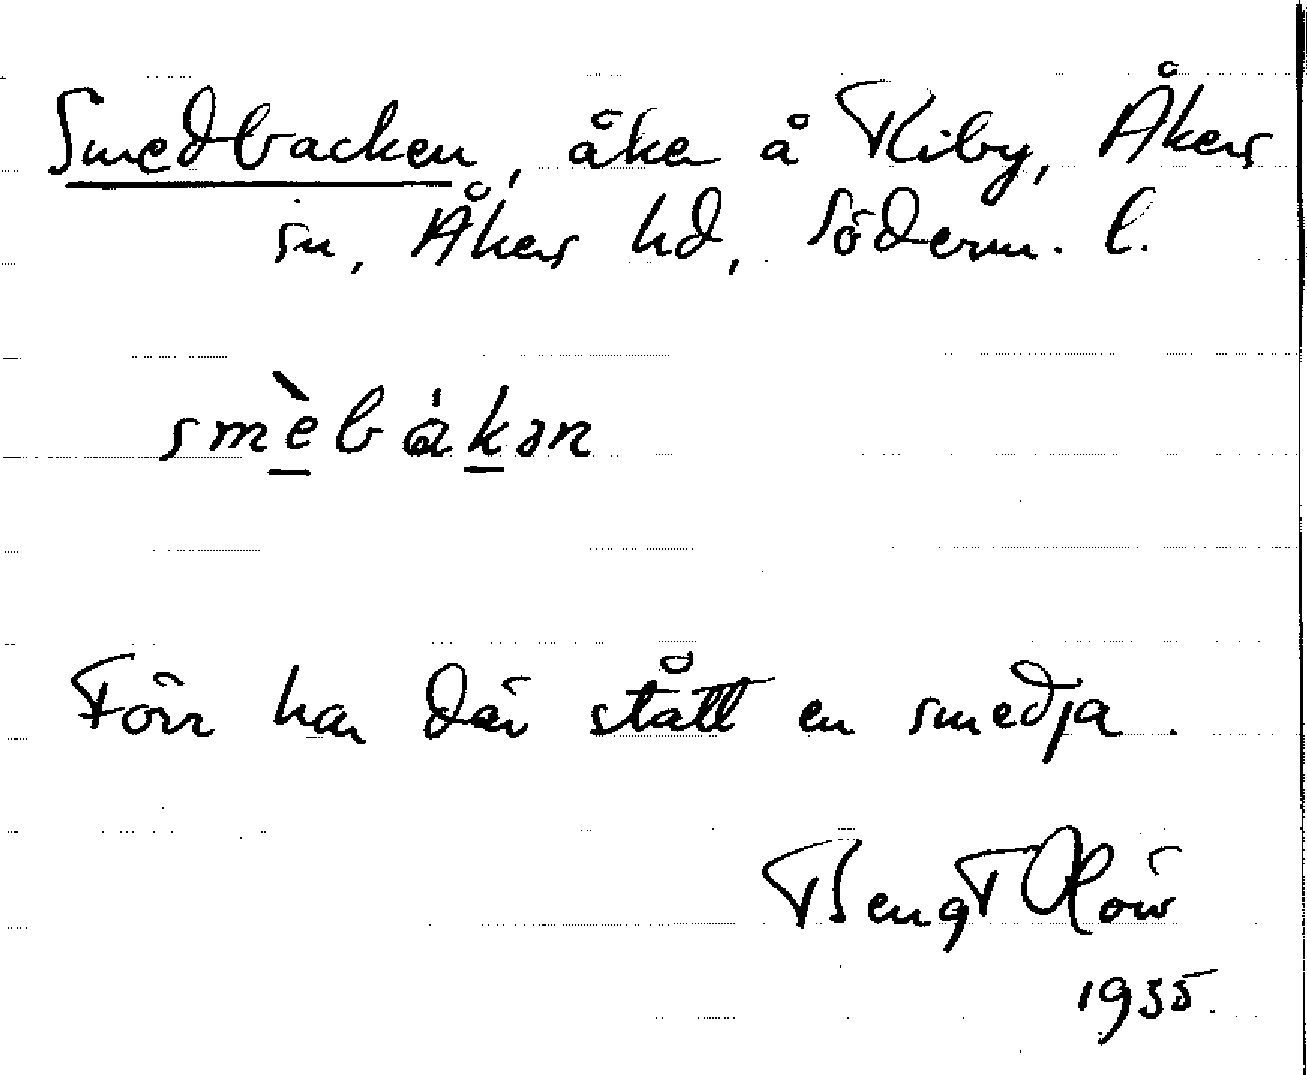 Smedbacken, åker å Kiby, Åkers
sn, Åkers hd, Söderm. l.
smèbákən
Förr har där stått en smedja.
Bengt
1935.